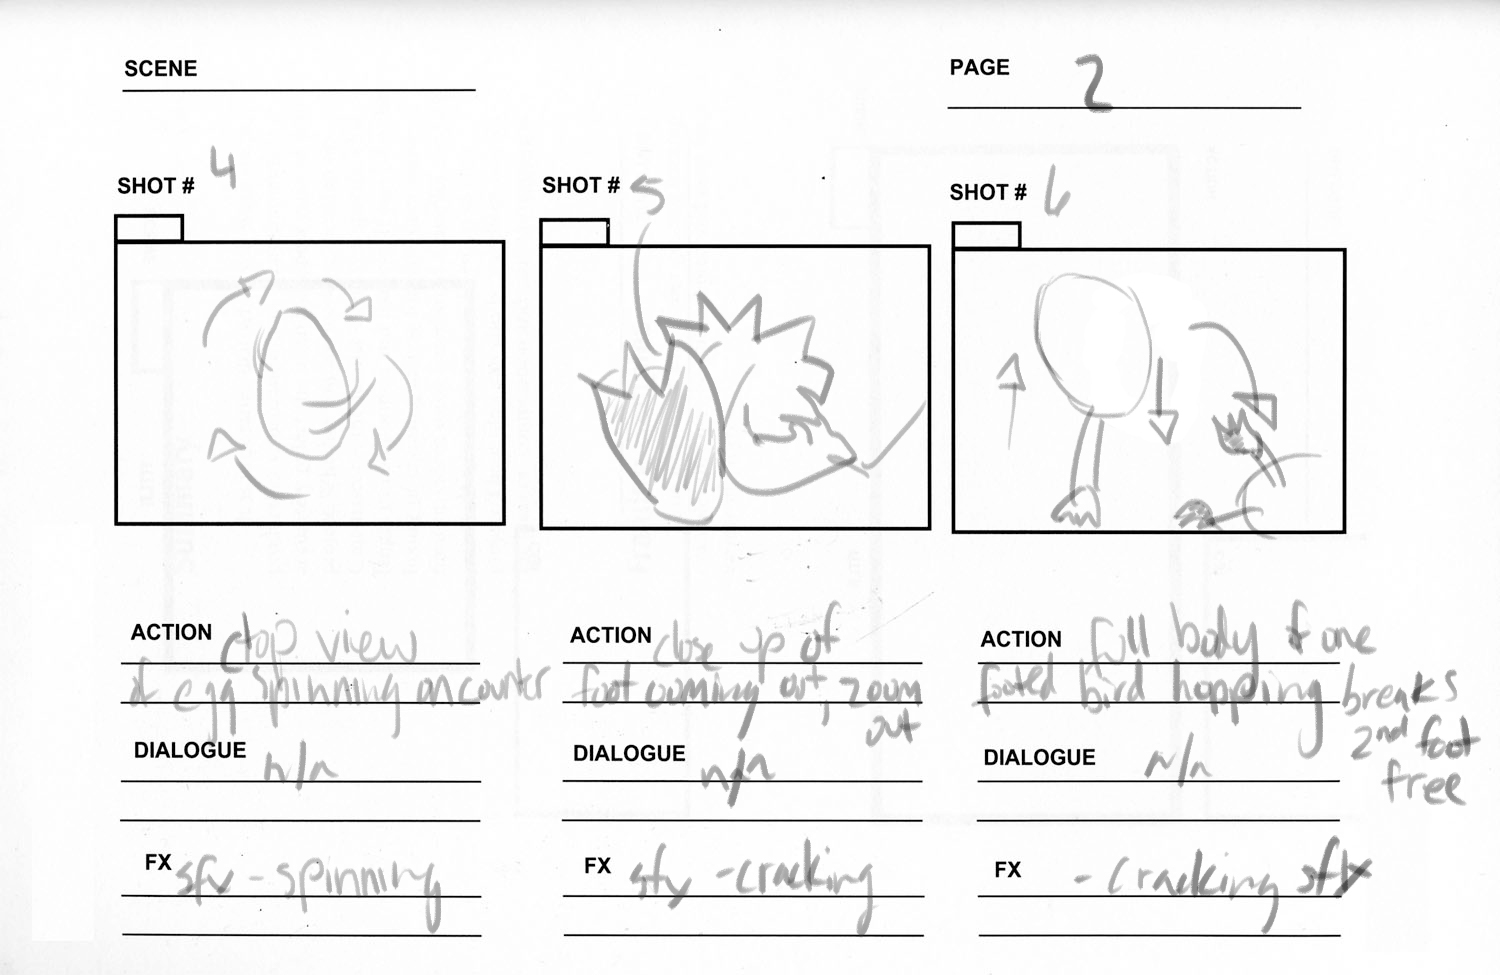 SCENE
PAGE 2
SHOT # 4
SHOT # 5
SHOT # 6
ACTION top view
of egg spinning on counter
DIALOGUE n/a
FX sfx - spinning
ACTION close up of
foot coming out, zoom
out
DIALOGUE n/a
FX sfx - cracking
ACTION full body of one
footed bird hopping breaks
2nd foot
free
DIALOGUE n/a
FX - cracking sfx